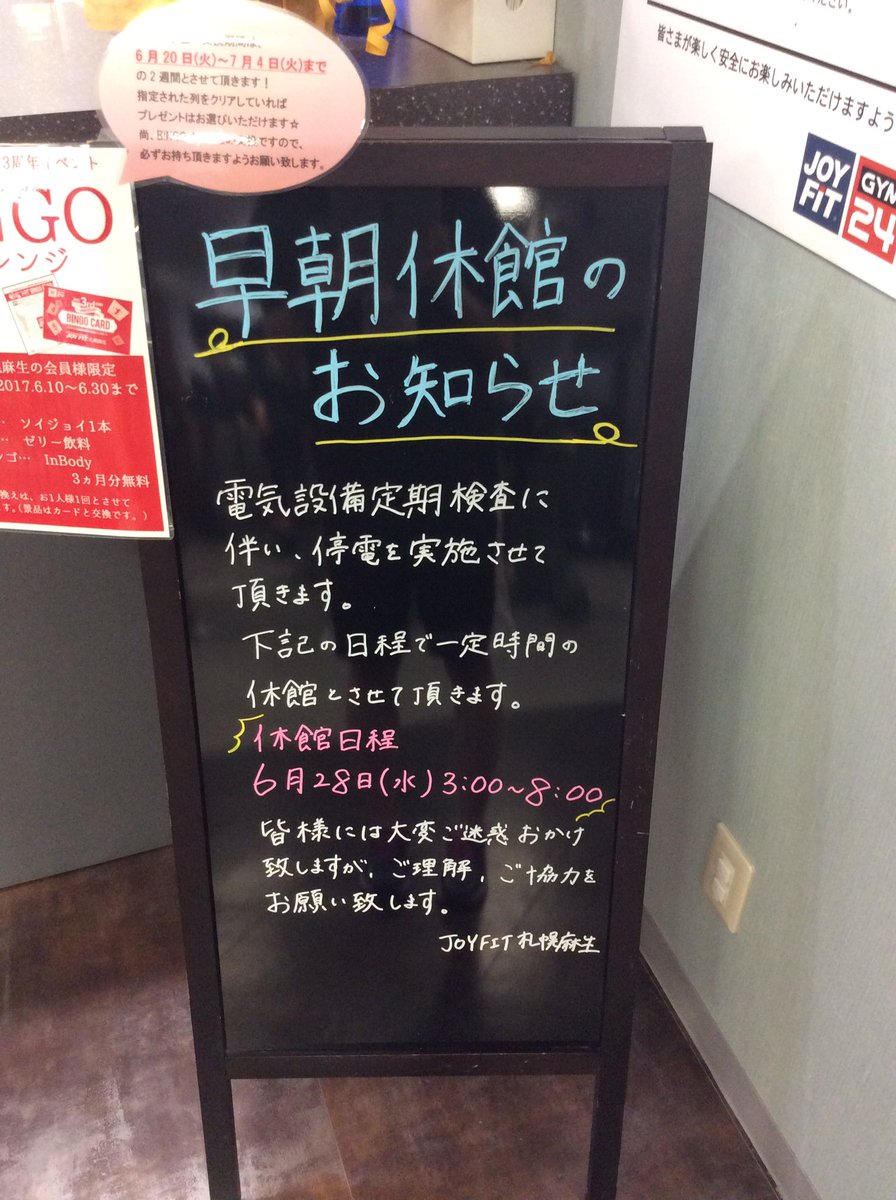 6月20日(火)～7月4日(火)まで
の2週間とさせて頂きます！
指定された列をクリアしていれば
プレゼントはお選びいただけます☆
尚、BINGO
ですので、
必ずお持ち頂きますようお願い致します。
ださい。
皆さまが楽しく安全にお楽しみいただけますよう
JOY
FIT
GYM
24
3周年イベント
NGO
レンジ
3rd
BINGO CARD
JOYFIT
麻生の会員様限定
2017.6.10～6.30まで
… ソイジョイ1本
… ゼリー飲料
ンゴ… InBody
3ヵ月分無料
換えは、お1人様1回とさせて
ます。（景品はカードと交換です。）
早朝休館の
お知らせ
電気設備定期検査に
伴い、停電を実施させて
頂きます。
下記の日程で一定時間の
休館とさせて頂きます。
休館日程
6月28日(水)3:00~8:00
皆様には大変ご迷惑おかけ
致しますが、ご理解、ご協力を
お願い致します。
JOYFIT札幌麻生